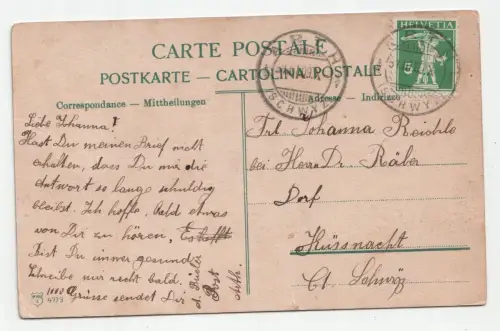 CARTE POSTALE
POSTKARTE – CARTOLINA POSTALE
Correspondance – Mittheilungen
Adresse – Indirizzo
HELVETIA
5
ARTH
(SCHWYZ)
Liebe Johanna!
Hast Du meinen Brief nicht
erhalten, dass Du mir die
Antwort so lange schuldig
bleibst. Ich hoffe, bald etwas
von Dir zu hören,
Bist Du immer gesund
Schreibe mir recht bald.
1000 Grüsse sendet Dir
Post
Arth.
4773
Frl Johanna Reichle
bei Herrn Dr Räber
Dorf
Küssnacht
Ct Schwyz